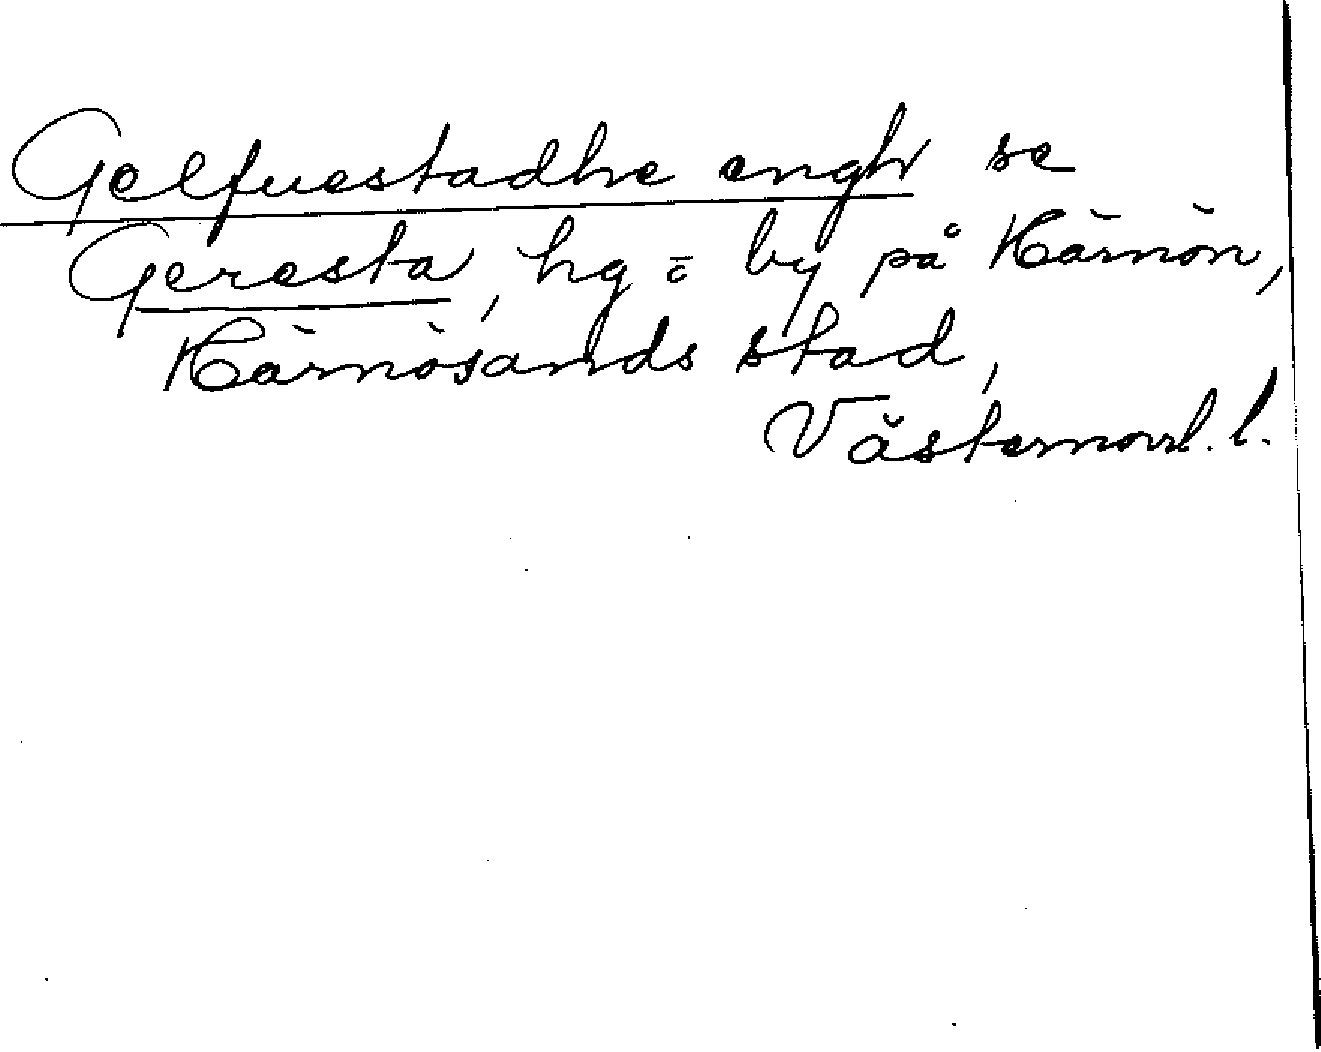 Gelfuestadhe engh se
Geresta, hg = by på Härnön,
Härnösands stad,
Västernorrl. l.